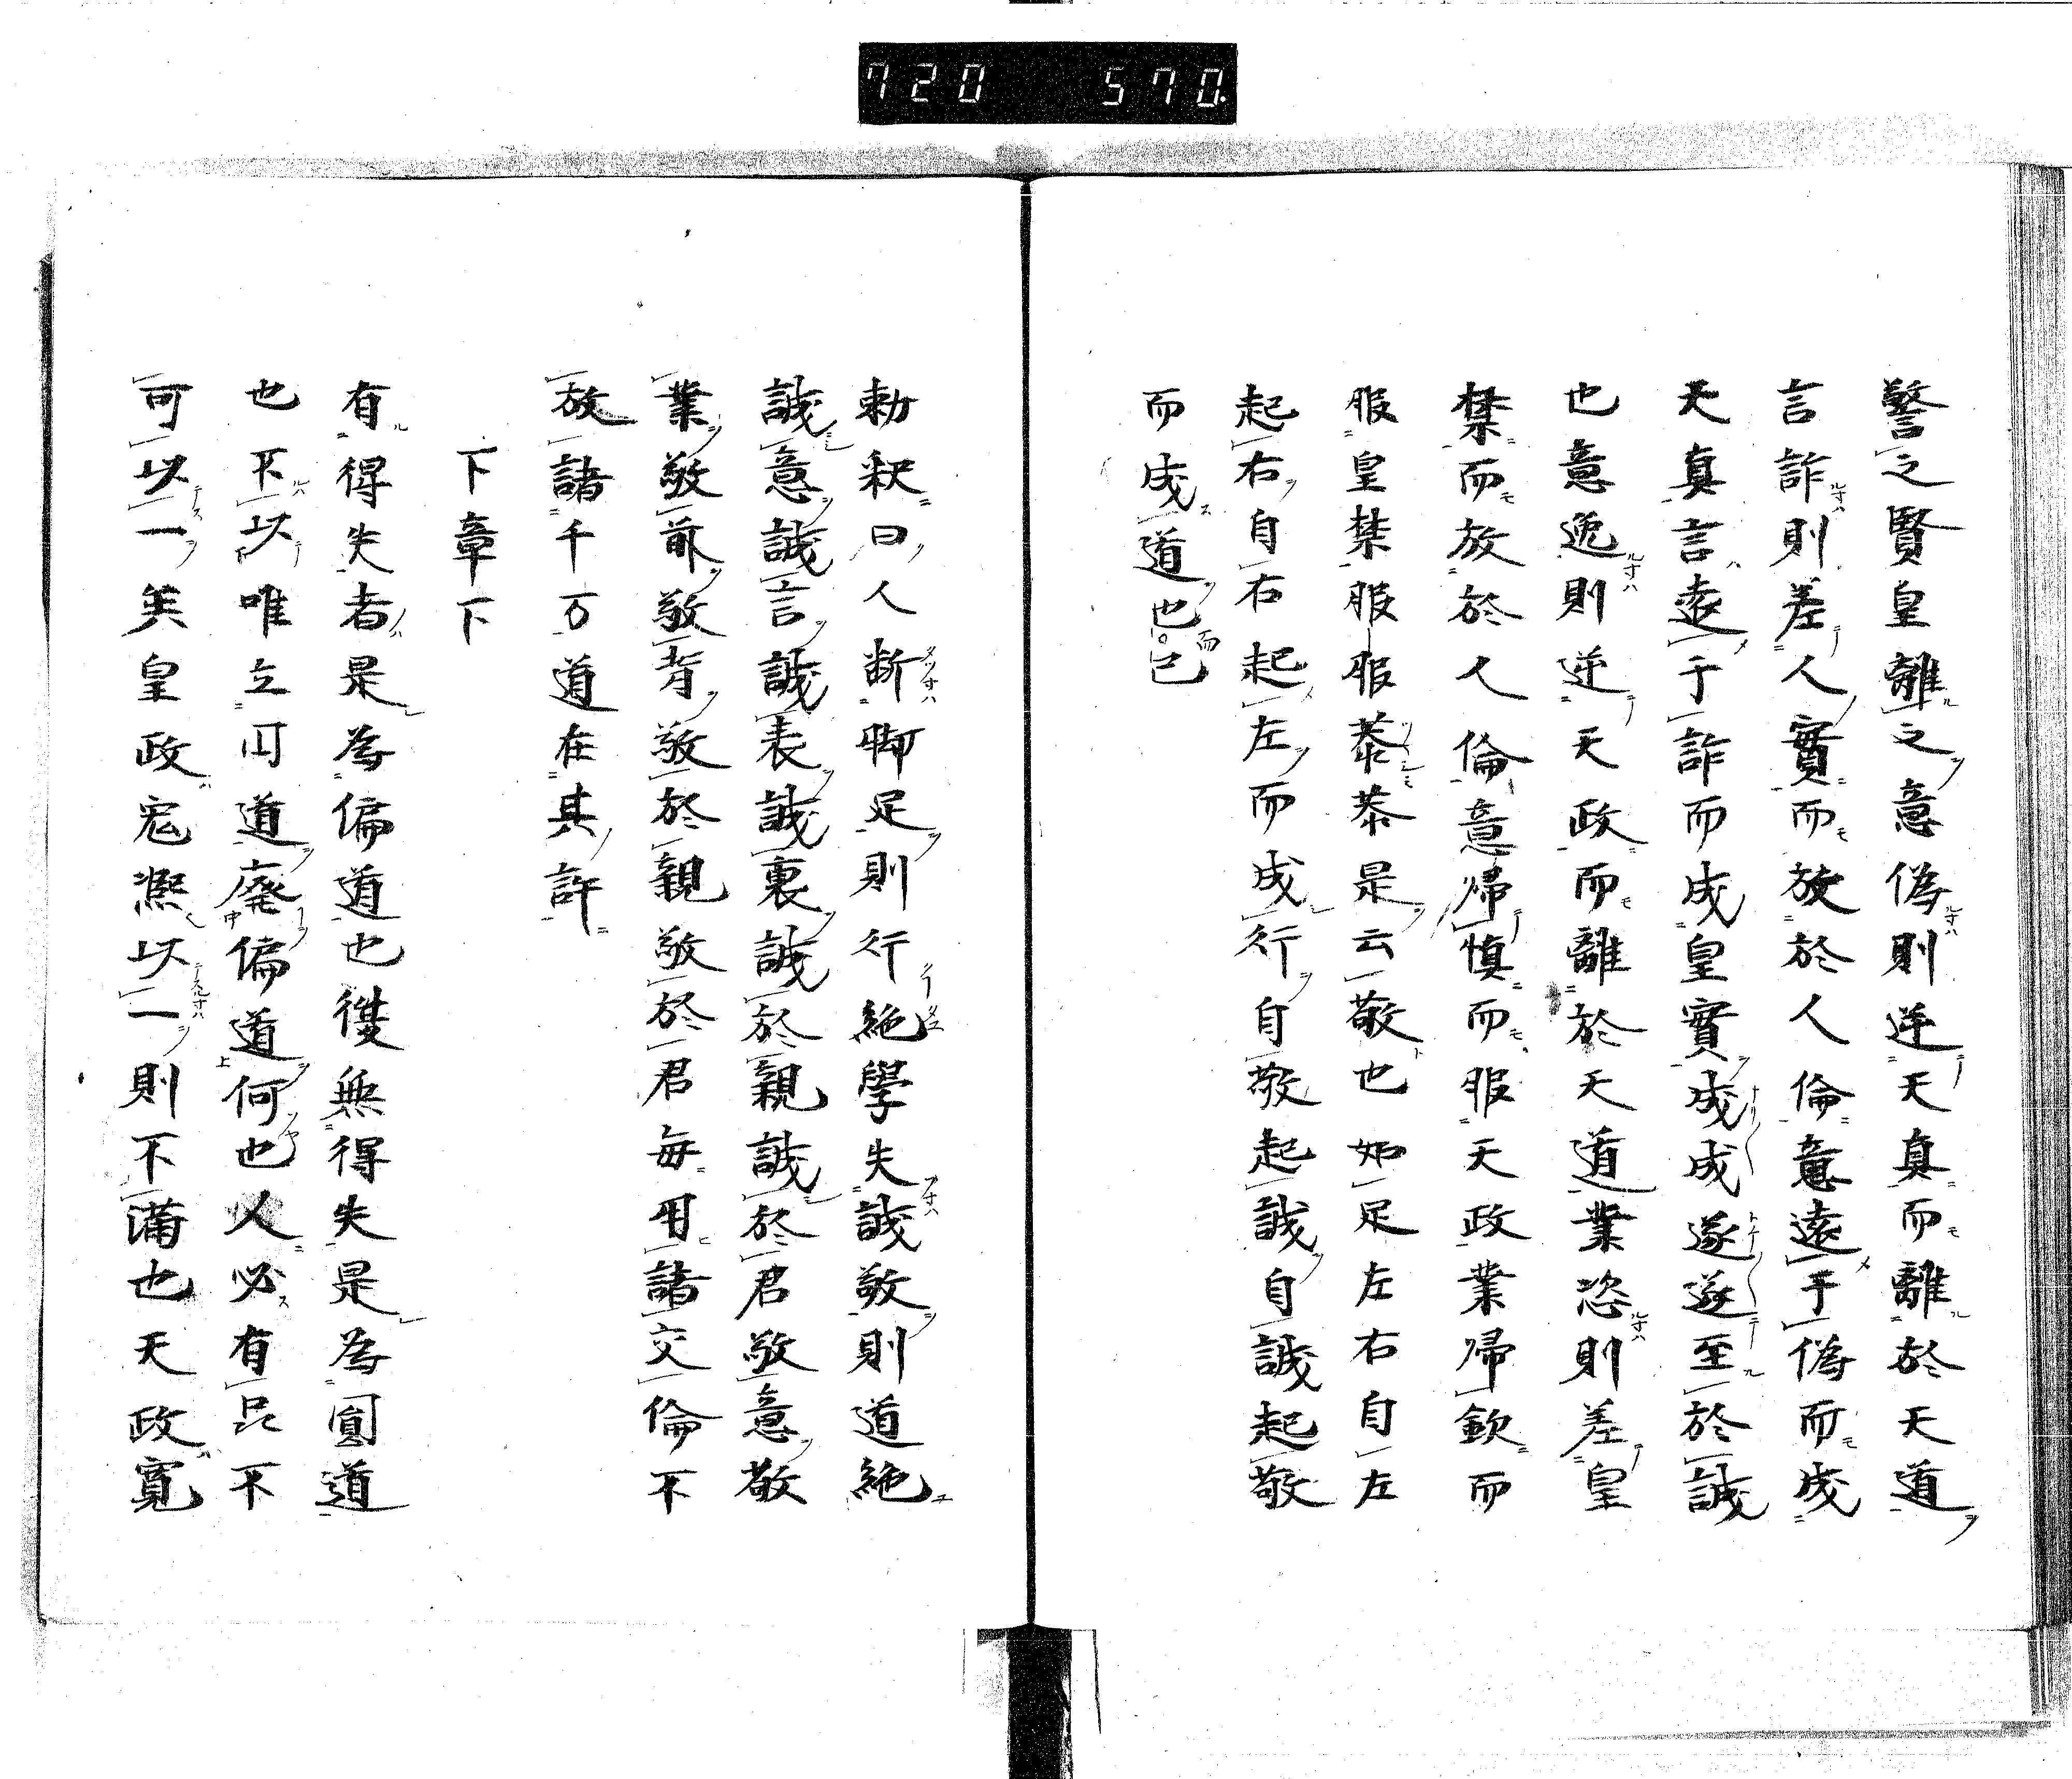 720 570.
警之賢皇離之意偽則逆天真而離於天道
言詐則差人實而放於人倫意遠于偽而成
天真言遠于詐而成皇實成成遂遂至於誠
也意逸則逆天政而離於天道業恣則差皇
禁而放於人倫意帰慎而服天政業帰欽而
服皇禁服服恭恭是云敬也如足左右自左
起右自右起左而成行自敬起誠自誠起敬
而成道也而已
勅釈曰人断脚足則行絶學失誠敬則道絶
誠意誠言誠表誠裏誠於親誠於君敬意敬
業敬前敬背敬於親敬於君毎用諸交倫不
放諸千万道在其許
下章下
有得失者是為偏道也復無得失是為圓道
也不以唯立円道廃偏道何也人必有品不
可以一矣皇政寛凞以一則不満也天政寛